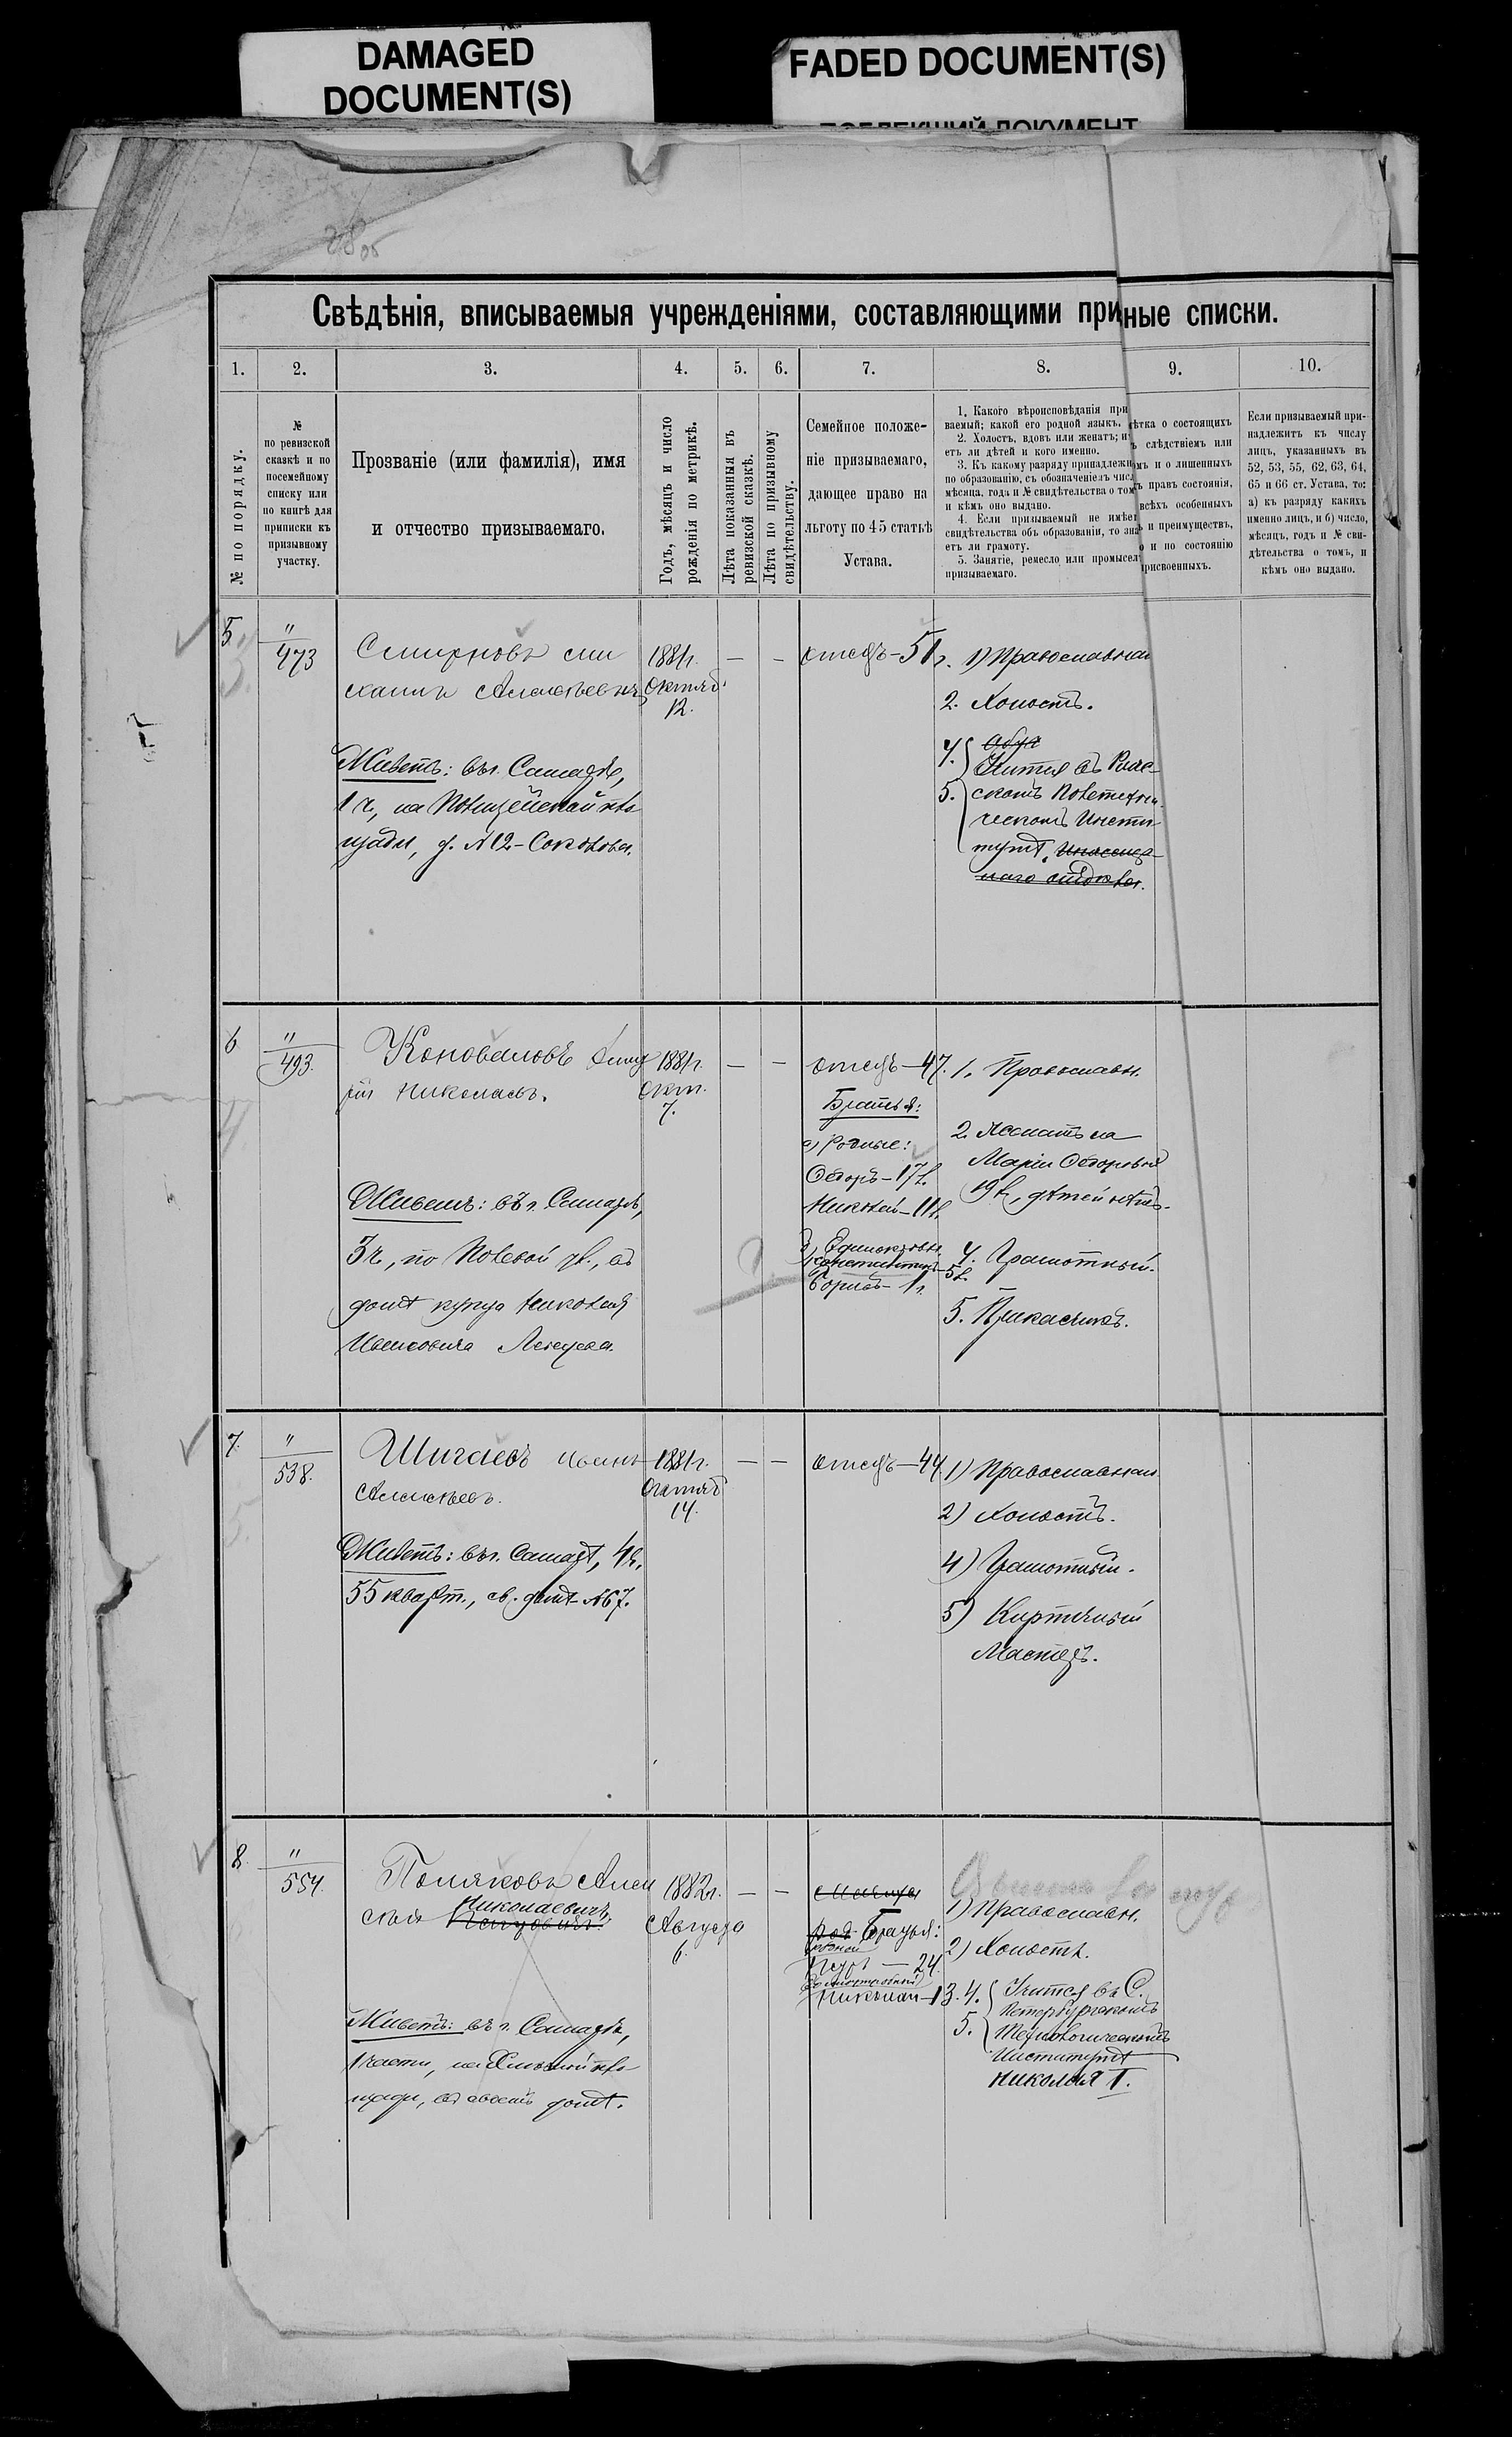 DAMAGED
DOCUMENT(S)
FADED DOCUMENT(S)
Свѣдѣнія, вписываемыя учрежденіями, составляющими при
ные списки.
1.
2.
3.
4.
5.
6.
7.
8.
9.
10.
№ по порядку.
№
по ревизской
сказкѣ и по
посемейному
списку или
по книгѣ для
приписки къ
призывному
участку.
Прозваніе (или фамилія), имя
и отчество призываемаго.
Годъ, мѣсяцъ и число
рожденія по метрикѣ.
Лѣта показанныя въ
ревизской сказкѣ.
Лѣта по призывному
свидѣтельству.
Семейное положе-
ніе призываемаго,
дающее право на
льготу по 45 статьѣ
Устава.
1. Какого вѣроисповѣданія при
ваемый; какой его родной языкъ.
2. Холостъ, вдовъ или женатъ; и
етъ ли дѣтей и кого именно.
3. Къ какому разряду принадлежи
по образованію, съ обозначеніемъ числ
мѣсяца, года и № свидѣтельства о том
и кѣмъ оно выдано.
4. Если призываемый не имѣе
свидѣтельства объ образованіи, то зна
етъ ли грамоту.
5. Занятіе, ремесло или промысел
призываемаго.
ѣтка о состоящихъ
ъ слѣдствіемъ или
омъ и о лишенныхъ
ъ правъ состоянія,
всѣхъ особенныхъ
ъ и преимуществъ,
о и по состоянію
присвоенныхъ.
Если призываемый при-
надлежитъ къ числу
лицъ, указанныхъ въ
52, 53, 55, 62, 63, 64,
65 и 66 ст. Устава, то:
а) къ разряду какихъ
именно лицъ, и б) число,
мѣсяцъ, годъ и № сви-
дѣтельства о томъ, и
кѣмъ оно выдано.
5.
"
473
Смирновъ
Алексѣевъ
1881г.
Октяб.
12.
—
—
отецъ – 51 г.
1) Православнаго
2. Холостъ.
4.
5.
Учится въ Рижс-
скомъ Политехни-
ческомъ Инсти-
тутѣ.
Живетъ: въ г. Самарѣ,
1 ч., на Полицейской пло
щади, д. №12 – Соколова.
6
"
493.
Коноваловъ Дмит
рій Николаевъ.
1881г.
Окт.
7.
—
—
отецъ – 47.
Братья:
а) родные:
Ѳедоръ – 17 л.
Николай – 11 л.
б) Единокровн.
Константинъ – 5 л.
Борисъ – 1 г.
1. Православн.
2. Женатъ на
Маріи Ѳедоровнѣ
19 л., дѣтей нѣтъ.
4. Грамотный.
5. Прикащикъ.
Живетъ: въ г. Самарѣ,
3 ч., по Полевой ул., въ
домѣ купца Николая
Ивановича
7.
"
538.
Шигаевъ Иванъ
Алексѣевъ.
1881г.
Октяб
14.
—
—
отецъ – 44
1) Православнаго
2) Холостъ.
4) Грамотный.
5) Кирпичный
Мастеръ.
Живетъ: въ г. Самарѣ, 4 ч.
55 кварт., св. домѣ №67.
8.
"
554.
Поляковъ Алек
сѣй Николаевичъ.
1882г.
Августа
6.
—
—
Братья:
родной
Петръ – 24.
Николай – 13.
1) Православн.
2) Холостъ.
4.
5.
Учится въ С.
Петербургскомъ
Технологическомъ
Институтѣ
Николая I.
Живетъ: въ г. Самарѣ,
1 части, на Хлѣбной пло
щади, въ своемъ домѣ.